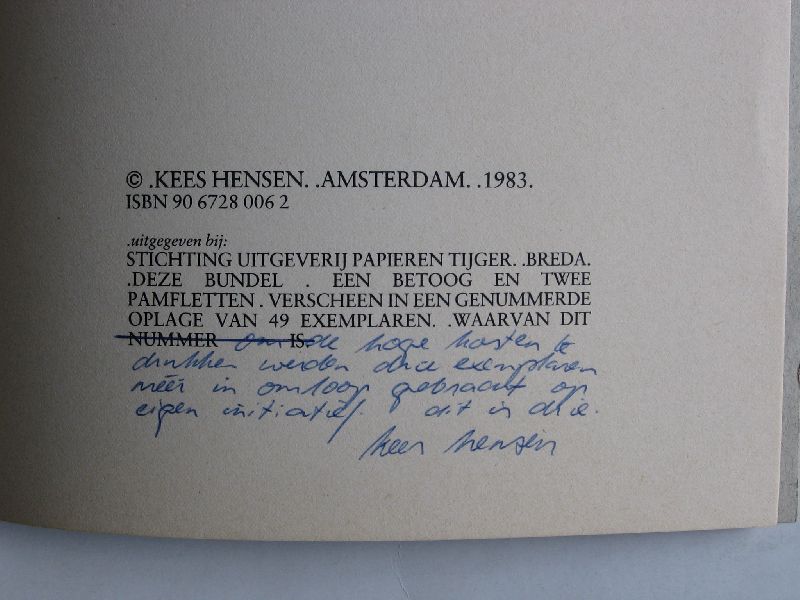 © .KEES HENSEN. .AMSTERDAM. .1983.
ISBN 90 6728 006 2
.uitgegeven bij:
STICHTING UITGEVERIJ PAPIEREN TIJGER. .BREDA.
.DEZE BUNDEL . EEN BETOOG EN TWEE
PAMFLETTEN . VERSCHEEN IN EEN GENUMMERDE
OPLAGE VAN 49 EXEMPLAREN. .WAARVAN DIT
NUMMER om IS. de hoge kosten te
drukken werden drie exemplaren
méér in omloop gebracht op
eigen initiatief. dit is drie.
kees hensen